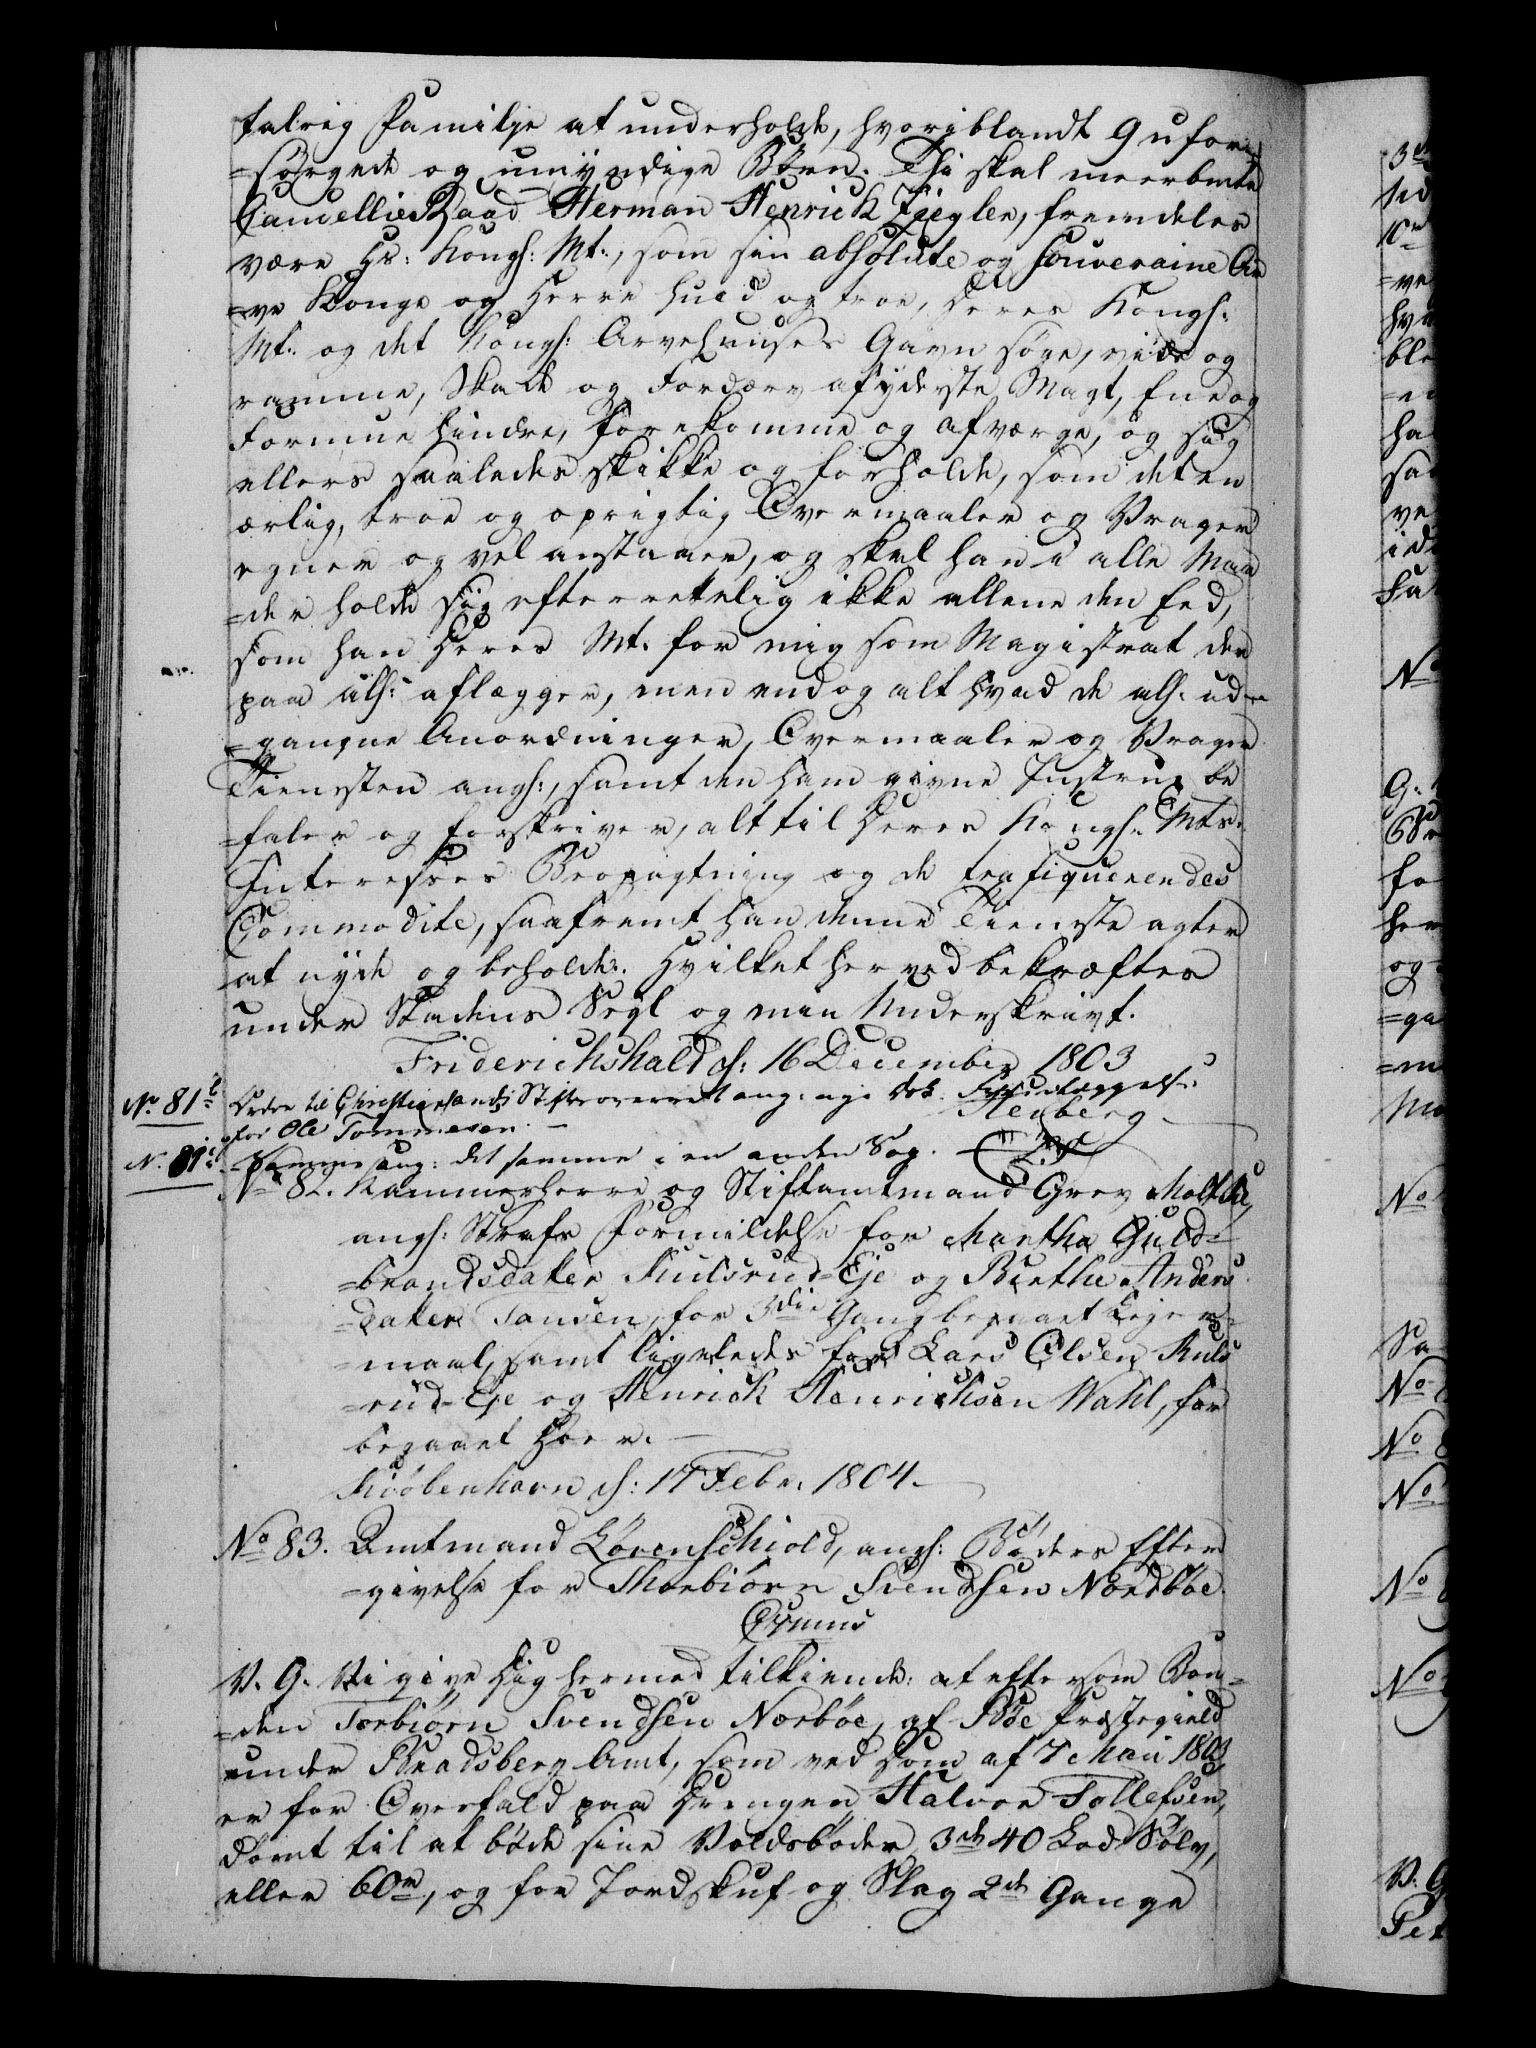 talrig Familje at underholde, hvoriblandt 9 ufor-
=sørgede og umyndige Børn. Thi skal meerbemte
CancellieRaad Herman Henrich Ziegler, fremdeles
være Hs: Kongl: Mt:, som sin absolute og souveraine Ar
=ve Konge og Herre huld og troe, Deres Kongl:
Mt: og det Kongl: Arvehuuses Gavn søge, vide og
ramme, Skade og Fordærv af yderste Magt, Evne og
Formue hindre, forekomme og afværge, og sig
ellers saaledes skikke og forholde, som det en
ærlig, troe og oprigtig Overmaaler og Vrager
egner og vel anstaaer, og skal han i alle Maa
=der holde sig efterrettelig ikke allene den Eed,
som han Deres Mt: for mig som Magistrat der
paa all: aflægger, men endog alt hvad de all: ud-
=gangne Anordninger, Overmaaler og Vrager
Tienesten angl:, samt den ham givne Instrux be
=faler og forskriver, alt til Deres Kongl: Mts:
Interesses Beobagtning og de trafiquerendes
Commodite, saafremt han denne Tieneste agter
at nyde og beholde. Hvilket herved bekræftes
under Stadens Segl og min Underskrivt.
Friderichshald d: 16 December 1803
No. 81 b Ordre til Christiansands Stiftsoverret ang: nye Dok. Fremlæggelse
for Ole Tommesen. — Stenberg
N. 81 c Samme ang: det samme i en anden Sag.
No 82. Kammerherre og Stiftamtmand Grev Moltke,
angl: Strafs Formildelse for Martha Guld-
=brandsdatter Kulsrud-Eje og Birthe Anders
=datter Tansen, for 3die Gang begaaet Leger-
=maal, samt ligeledes for Lars Olsen Kuls
=rud-Eje og Henrick Henrichsen Wahl, for
begaaet Hoer. —
Kiøbenhavn d: 17 Febr. 1804. —
No 83. Amtmand Løvenschiold, angl: Bøders Efter
=givelse for Thorbiørn Svendsen Nordbøe.
Cusmus
V. G. Vi give Dig hermed tilkiende: at eftersom Bon-
=den Torbiørn Svendsen Norbøe, af Bøe Præstegield
under Bradsberg Amt, som ved Dom af 7 Maii 1803
er for Overfald paa Drengen Halvor Tollefsen,
dømt til at bøde sine Voldsbøder, 3de 40 Lod Sølv,
eller 60 rd, og for Jordskuf og Slag 2de Gange